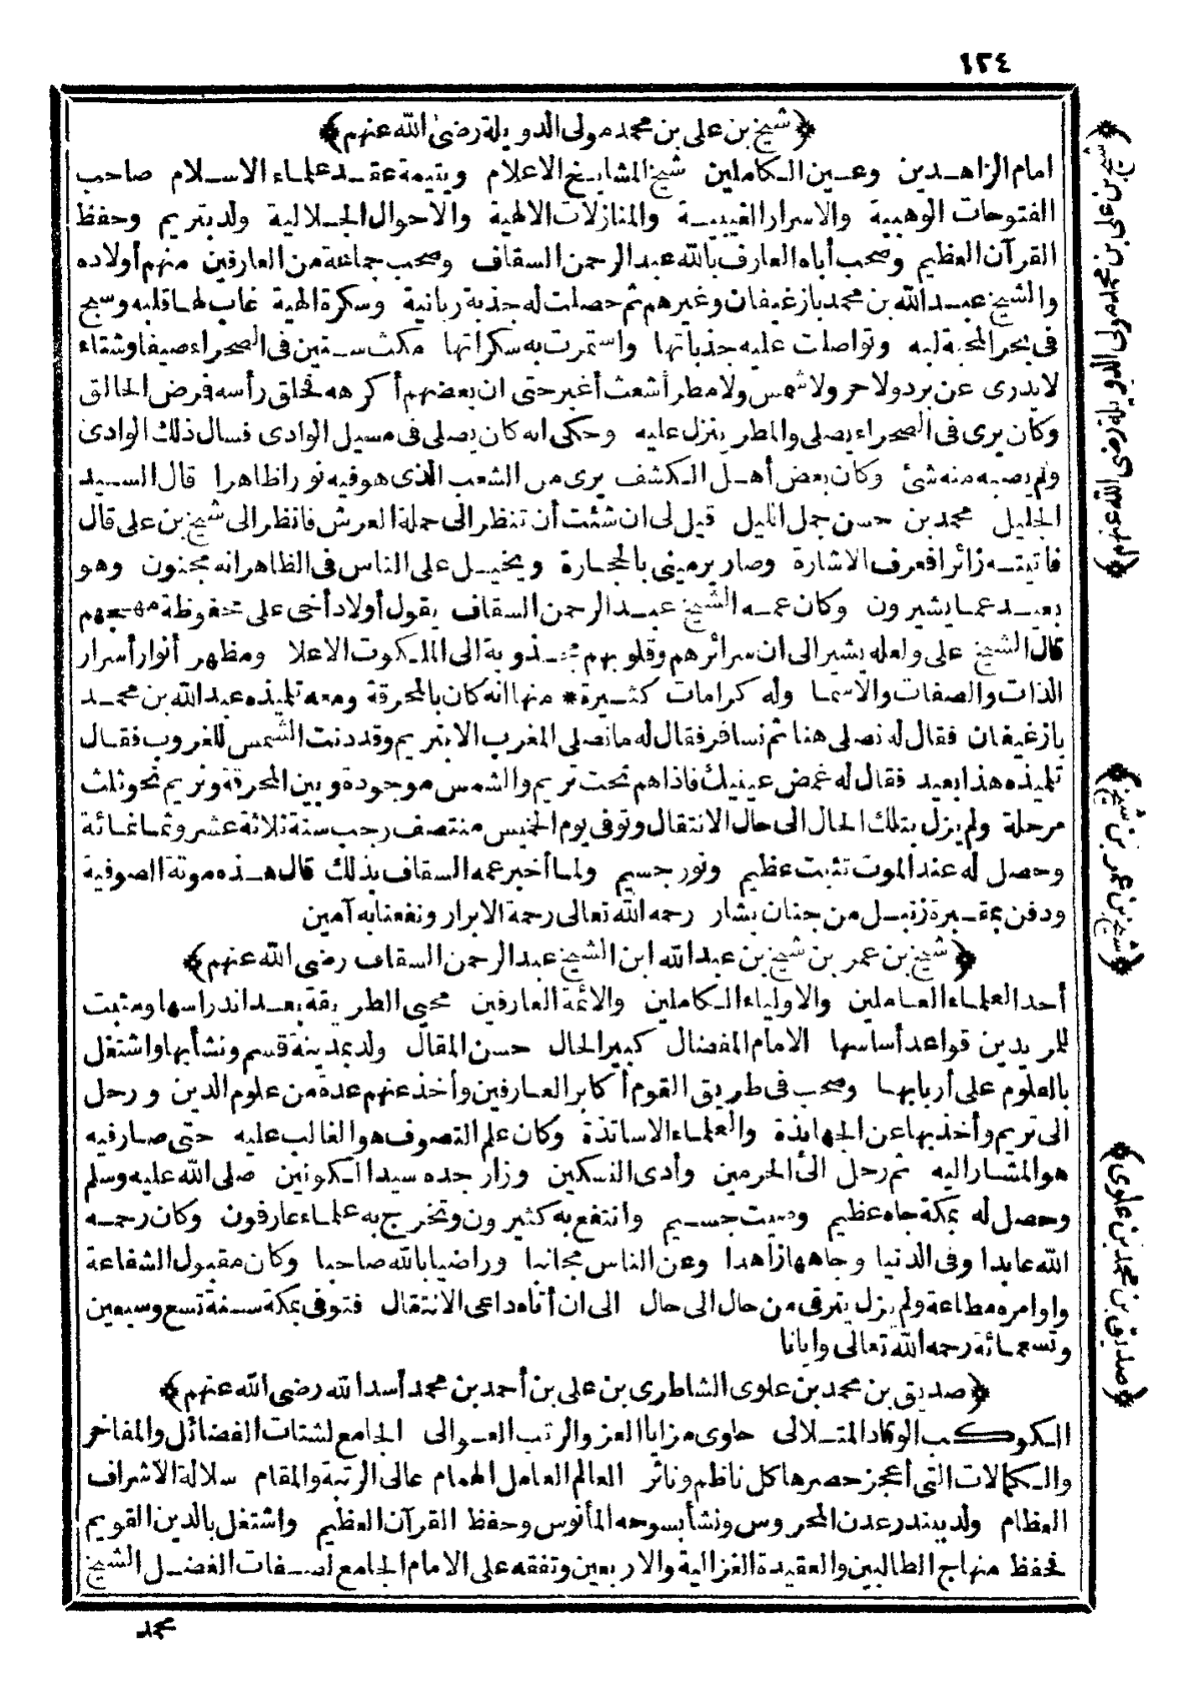 ١٢٤
﴿شيخ بن على بن محمد مولى الدويلة رضى الله عنهم﴾
امام الزاهدين وعين الكاملين شيخ المشايخ الاعلام ويتيمة عقد علماء الاسلام صاحب
الفتوحات الوهبية والاسرار الغيبية والمنازلات الالهية والاحوال الجلالية ولد بتريم وحفظ
القرآن العظيم وصحب أباه العارف بالله عبد الرحمن السقاف وصحب جماعة من العارفين منهم أولاده
والشيخ عبد الله بن محمد بازغيفان وغيرهم ثم حصلت له جذبة ربانية وسكرة الهية غاب لها قلبه وسبح
فى بحر المحبة لبه وتواصلت عليه جذباتها واستمرت به سكراتها مكث سنتين فى الصحراء صيفا وشتاء
لا يدرى عن برد ولا حر ولا شمس ولا مطر أشعث أغبر حتى ان بعضهم أكرهه فحلق رأسه فرض الحالق
وكان يرى فى الصحراء يصلى والمطر ينزل عليه وحكى انه كان يصلى فى مسيل الوادى فسال ذلك الوادى
ولم يصبه منه شئ وكان بعض أهل الكشف يرى من الشعب الذى هو فيه نورا ظاهرا قال السيد
الجليل محمد بن حسن جمل الليل قيل لى ان شئت أن تنظر الى حملة العرش فانظر الى شيخ بن على قال
فاتيته زائرا فعرف الاشارة وصار يرمينى بالحجارة ويخيل على الناس فى الظاهر انه مجنون وهو
بعيد عما يشيرون وكان عمه الشيخ عبد الرحمن السقاف يقول أولاد أخى على محفوظة مهجهم
قال الشيخ على ولعله يشير الى ان سرائرهم وقلوبهم مجذوبة الى الملكوت الاعلا ومظهر أنوار أسرار
الذات والصفات والاسما وله كرامات كثيرة * منها انه كان بالمحرقة ومعه تلميذه عبد الله بن محمد
بازغيفان فقال له نصلى هنا ثم نسافر فقال له ما نصلى المغرب الا بتريم وقد دنت الشمس للغروب فقال
تلميذه هذا بعيد فقال له غمض عينيك فاذا هم تحت تريم والشمس موجودة وبين المحرقة وتريم نحو ثلث
مرحلة ولم يزل بتلك الحال الى حال الانتقال وتوفى يوم الخميس منتصف رجب سنة ثلاثة عشر وثمانمائة
وحصل له عند الموت تثبت عظيم ونور جسيم ولما أخبر عمه السقاف بذلك قال هذه موتة الصوفية
ودفن بمقبرة زنبل من جنان بشار رحمه الله تعالى رحمة الابرار ونفعنا به آمين
﴿شيخ بن عمر بن شيخ بن عبد الله ابن الشيخ عبد الرحمن السقاف رضى الله عنهم﴾
أحد العلماء العاملين والاولياء الكاملين والائمة العارفين محيى الطريقة بعد اندراسها ومثبت
للمريدين قواعد أساسها الامام المفضال كبير الحال حسن المقال ولد بمدينة قسم ونشأ بها واشتغل
بالعلوم على أربابها وصحب فى طريق القوم أكابر العارفين وأخذ عنهم عدة من علوم الدين ورحل
الى تريم وأخذ بها عن الجهابذة والعلماء الاساتذة وكان علم التصوف هو الغالب عليه حتى صار فيه
هو المشار اليه ثم رحل الى الحرمين وأدى النسكين وزار جده سيد الكونين صلى الله عليه وسلم
وحصل له بمكة جاه عظيم وصيت جسيم وانتفع به كثيرون وتخرج به علماء عارفون وكان رحمه
الله عابدا وفى الدنيا وجاهها زاهدا وعن الناس مجانبا وراضيا بالله صاحبا وكان مقبول الشفاعة
واوامره مطاعة ولم يزل يترقى من حال الى حال الى ان أتاه داعى الانتقال فتوفى بمكة سنة تسع وسبعين
وتسعمائة رحمه الله تعالى وايانا
﴿صديق بن محمد بن علوى الشاطرى بن على بن أحمد بن محمد أسد الله رضى الله عنهم﴾
الكوكب الوقاد المتلالى حاوى مزايا العز والرتب العوالى الجامع لشتات الفضائل والمفاخر
والكمالات التى أعجز حصرها كل ناظم وناثر العالم العامل الهمام عالى الرتبة والمقام سلالة الاشراف
العظام ولد ببندر عدن المحروس ونشأ بسوحه المأنوس وحفظ القرآن العظيم واشتغل بالدين القويم
فحفظ منهاج الطالبين والعقيدة الغزالية والاربعين وتفقه على الامام الجامع لصفات الفضل الشيخ
محمد
﴿شيخ بن على بن محمد مولى الدويلة رضى الله عنهم﴾
﴿شيخ بن عمر بن شيخ﴾
﴿صديق بن محمد بن علوى﴾